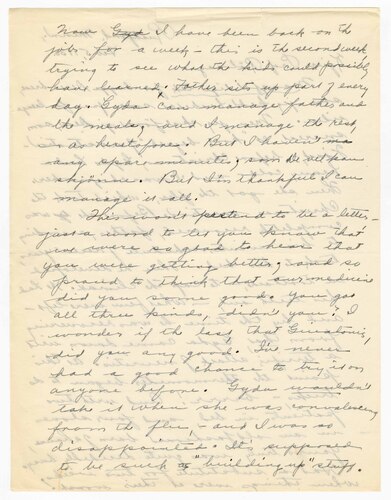 Now Gyd I have been back on the
job for a week – this is the second week
trying to see what the kids could possibly
have learned. Father sits up part of every
day. Gyda can manage father and
the meals, and I manage the rest,
as heretofore. But I haven't
any spare minutes, som De vel kan
skjönne. But I'm thankful I can
manage it all.
This won't pretend to be a letter –
just a word to let you know that
we were so glad to hear that
you were getting better, and so
proud to think that our medicine
did you some good. You got
all three kinds, didn't you? I
wonder if the last, that
did you any good. I've never
had a good chance to try it on
anyone before. Gyda wouldn't
take it when she was convalescing
from the flu, – and I was so
disappointed. It's supposed
to be such a "building up" stuff.